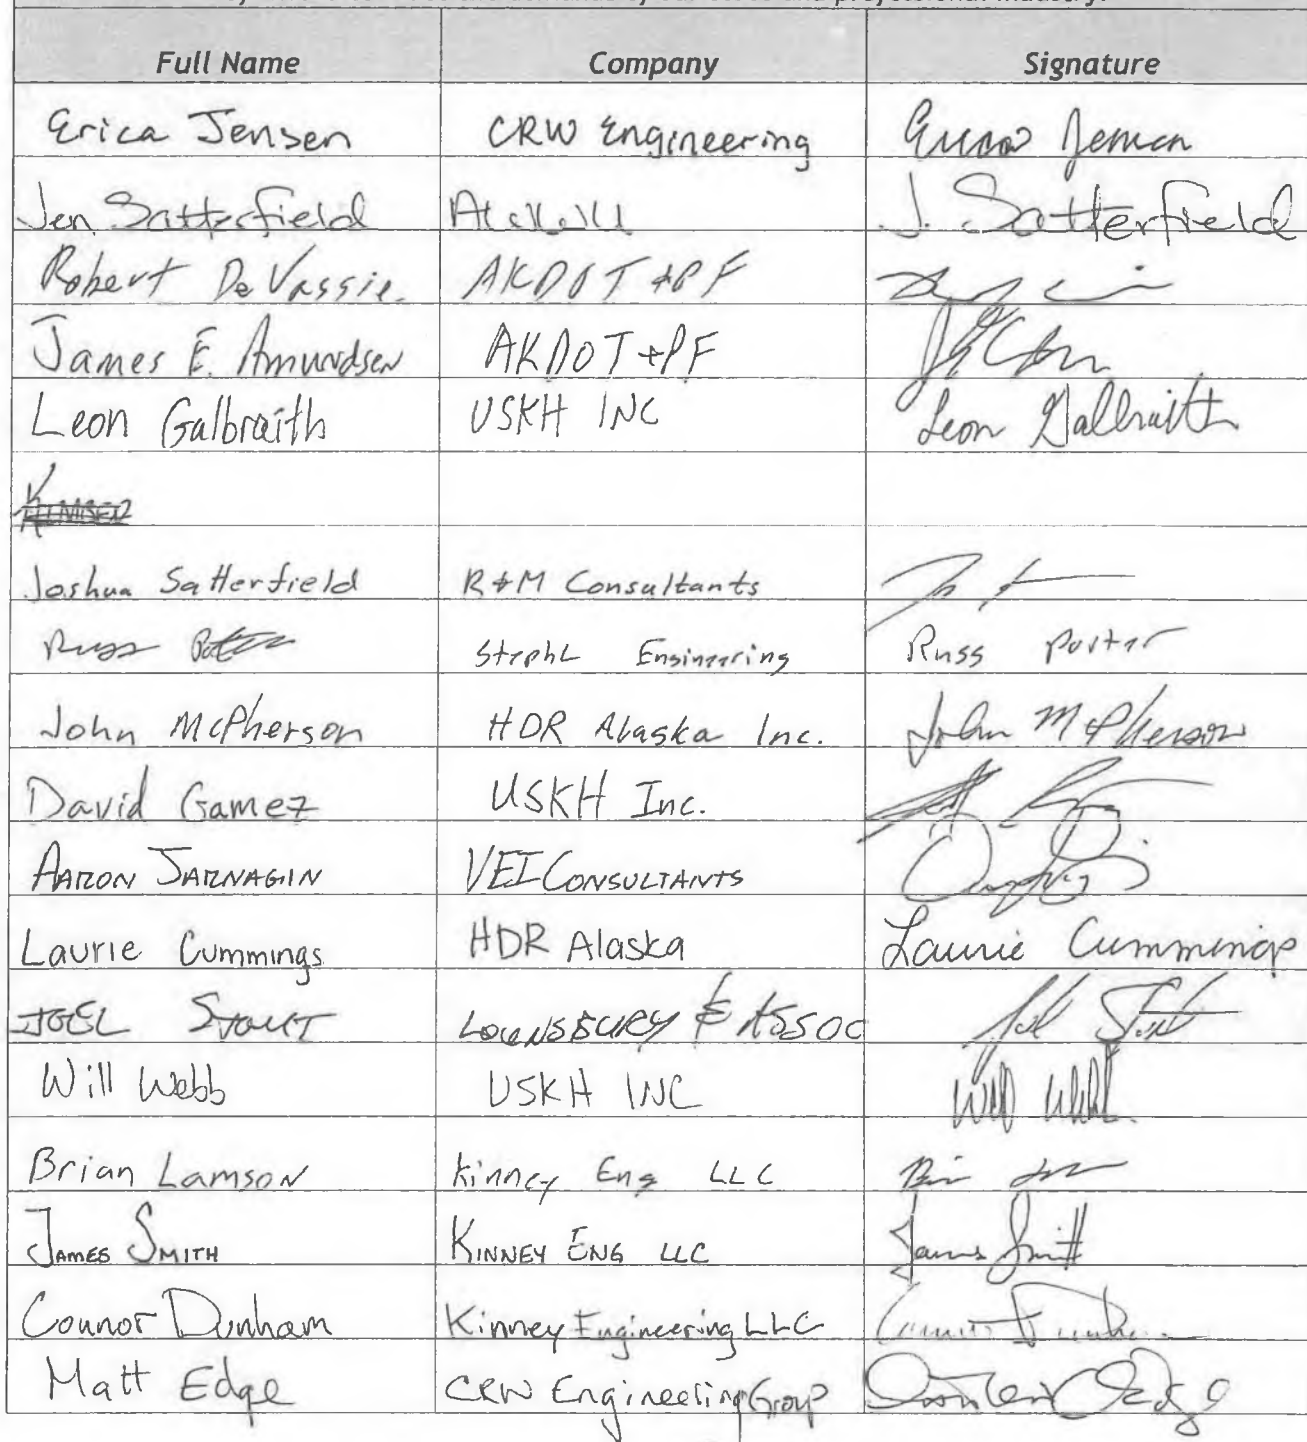 and professional industry.
Full Name Company Signature
Erica Jensen CRW Engineering Erica Jensen
Jen Satterfield J. Satterfield
Robert DeVassie AKDOT+PF
James E. Amundsen AKDOT+PF
Leon Galbraith USKH INC Leon Galbraith
Joshua Satterfield R+M Consultants
Russ Stephl Engineering Russ Porter
John McPherson HDR Alaska Inc. John McPherson
David Gamez USKH Inc.
AARON JARNAGIN VEI CONSULTANTS
Laurie Cummings HDR Alaska Laurie Cummings
JOEL STOUT LOUNSBURY & ASSOC Joel Stout
Will Webb USKH INC Will Webb
Brian Lamson Kinney Eng LLC
JAMES SMITH KINNEY ENG LLC James Smith
Connor Dunham Kinney Engineering LLC Connor Dunham
Matt Edge CRW Engineering Group Edge